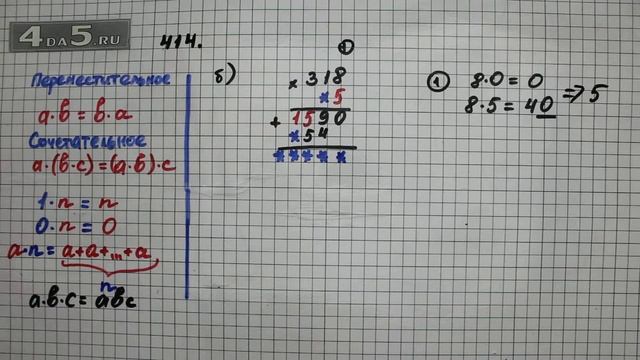 4ДА5.RU
414.
Переместительное
a·b = b·a
Сочетательное
a·(b·c)=(a·b)·c
1·n = n
0·n = 0
a·n = a+a+...+a
n
a·b·c = abc
б)
①
× 318
*5
+ 1590
*54
*****
① 8·0 = 0
8·5 = 40 ⇒ 5